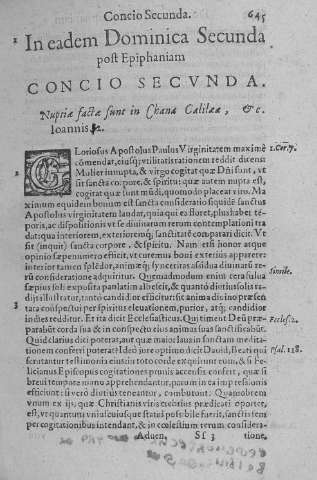 Concio Secunda. 645
In eadem Dominica Secunda
post Epiphaniam
CONCIO SECVNDA.
Nuptiæ factæ sunt in Chana Galilææ, &c.
Ioannis 2.
GLoriosus Apostolus Paulus Virginitatem maximè 1.Cor.7.
cõmendat, eiusq; vtilitatis rationem reddit dicens:
Mulier innupta, & virgo cogitat quæ Dñi sunt, vt
sit sancta corpore, & spiritu: quæ autem nupta est,
cogitat quæ sunt mũdi, quomodo placeat viro. Ma
ximum equidem bonum est sancta consideratio siquidẽ sanctus
Apostolus virginitatem laudat, quia qui ea floret, plus habet tẽ-
poris, ac dispositionis vt se diuinarum rerum contemplationi tra
dat: qua interiorem, exterioremq; sanctitatẽ comparari dicit. Vt
sit (inquit) sancta corpore, & spiritu. Nam etsi honor atque
opinio sæpenumero efficit, vt caremus boni exterius apparere:
interior tamen splẽdor, animæq; synceritas assidua diuinarũ re-
rũ consideratione adquiritur. Quemadmodum enim cera sulua Simile.
sæpius soli exposita panlatim albescit, & quantò diutius solis ra-
dijs illustratur, tantò candidior efficitur: sic anima diuino præsen
tata conspectui per spiritus eleuationem, purior, atq; candidior
in dies redditur. Et ita dicit Ecclesiasticus. Qui timent Deũ præ- Eccles.2.
parabũt corda sua & in conspectu eius animas suas sanctificabũt.
Quid clarius dici poterat, aut quæ maior laus in sanctam medita-
tionem conferri poterat? Ideò iure optimo dicit Dauid, Beati qui Psal. 118.
scrutantur testimonia eius in toto corde exquirunt eum, & si Fe-
licianus Episcopus cogitationes prunis accensis confert, quæ si
breui tempore manu apprehendantur, parum in ea impressionis
efficiunt: si verò diutius teneantur, comburunt. Quamobrem
vnum ex ijs, quæ Christianis viris ecclesius prædicari oportet,
est, vt quantum vniuscuiusque status possibile fuerit, sanctis sem
per cogitationibus intendant, & in cœlestium rerum considera-
Aduen. Sſ 3 tione,